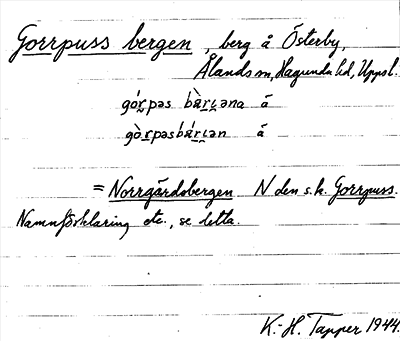 Gorrpuss bergen, berg å Österby,
Ålands sn, Hagunda hd, Uppsl.
= Norrgårdsbergen N den s.k. Gorrpuss.
Namnförklaring etc., se detta.
K.-H. Tapper 1944.